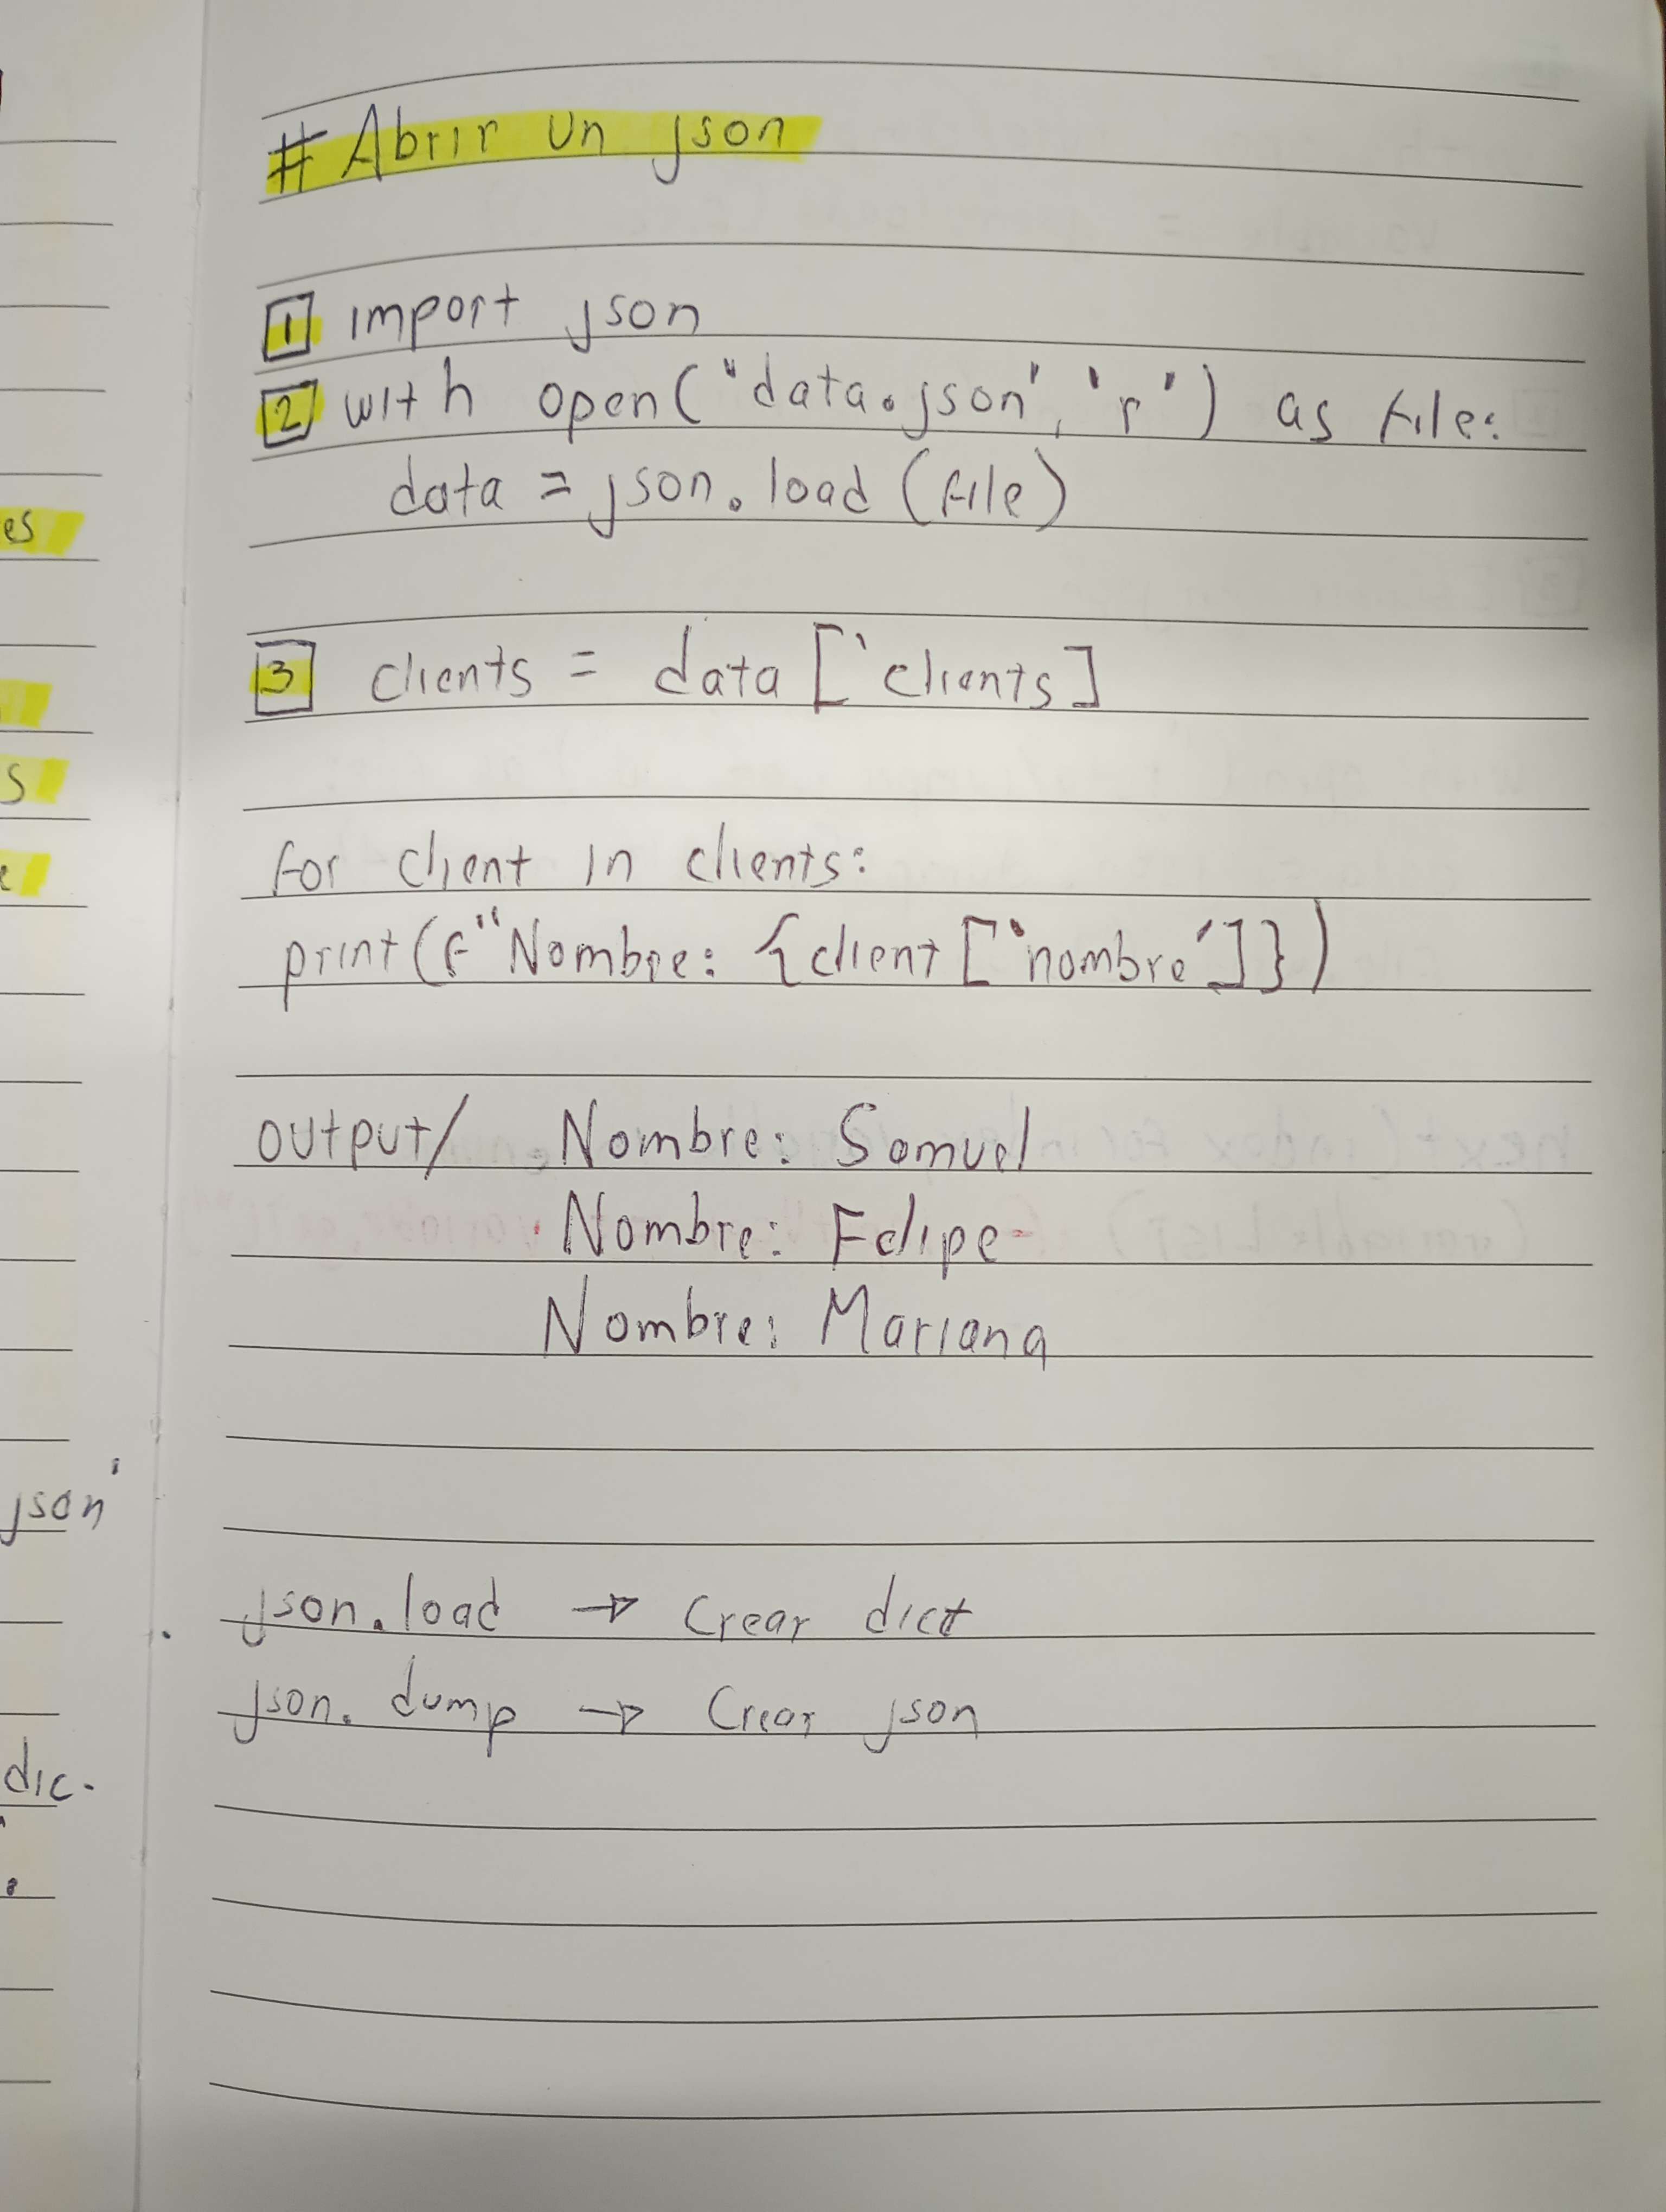 # Abrir un json
1 import json
2 with open("data.json', 'r') as file:
data = json.load (file)
3 clients = data ['clients]
for client in clients:
print(f"Nombre: {client ['nombre']})
output/ Nombre: Samuel
Nombre: Felipe
Nombre: Mariana
json.load → Crear dict
json. dump → Crear json
es
s
e
json'
dic.